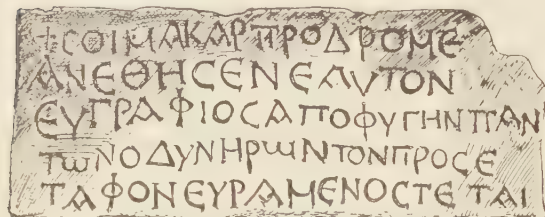 +CΟΙΜΑΚΑΡΠΡΟΔΡΟΜΕ
ΑΝΕΘΗCΕΝΕΑΥΤΟΝ
ΕΥΓΡΑΦΙΟCΑΠΟΦΥΓΗΝΠΑΝ
ΤωΝΟΔΥΝΗΡωΝΤΟΝΠΡΟCΕ
ΤΑΦΟΝΕΥΡΑΜΕΝΟCΤΕΤΑΙ